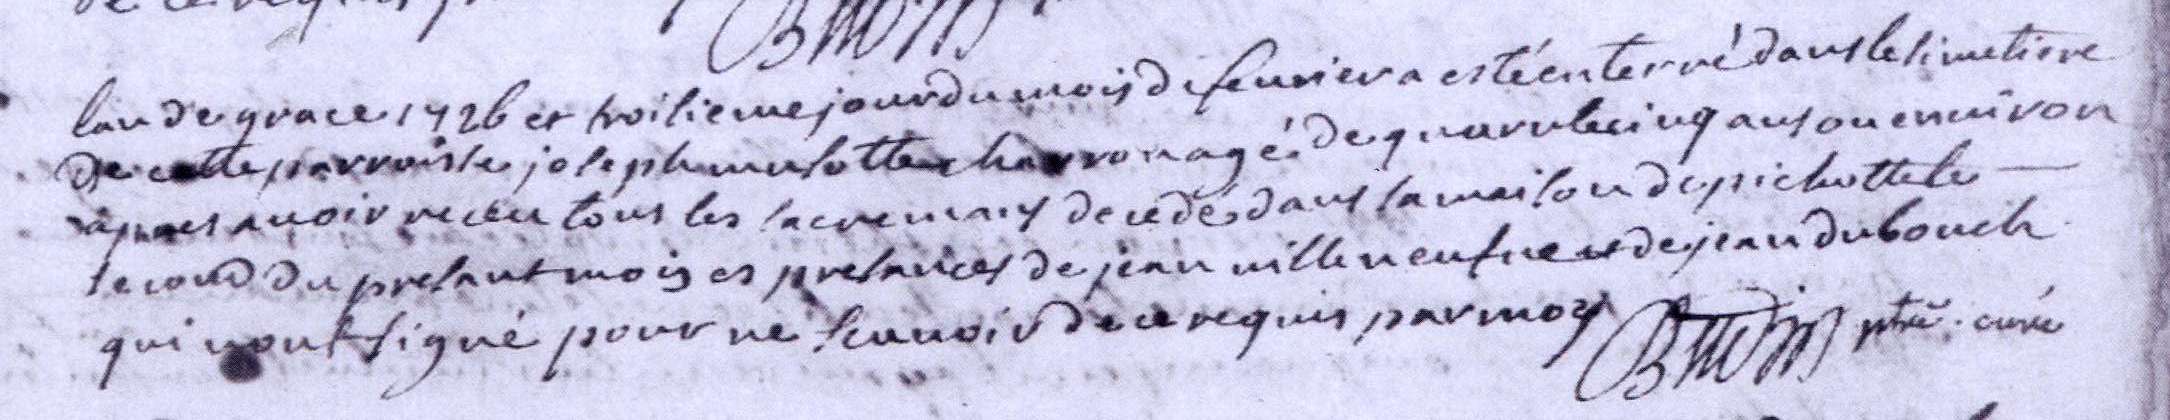 de ce requis
lan de grace 1726 et troisieme jour du mois de feuvrier a esté enterré dans le simetiere
de cette parroisse joseph musotte charron agé de quarante cinq ans ou environ
apres avoir receu tous les sacremans decedé dans la maison de pichotte le
second du presant mois es presances de jean villeneufve et de jean dubouch
qui nont signé pour ne scavoir de ce requis par moy ptre curé